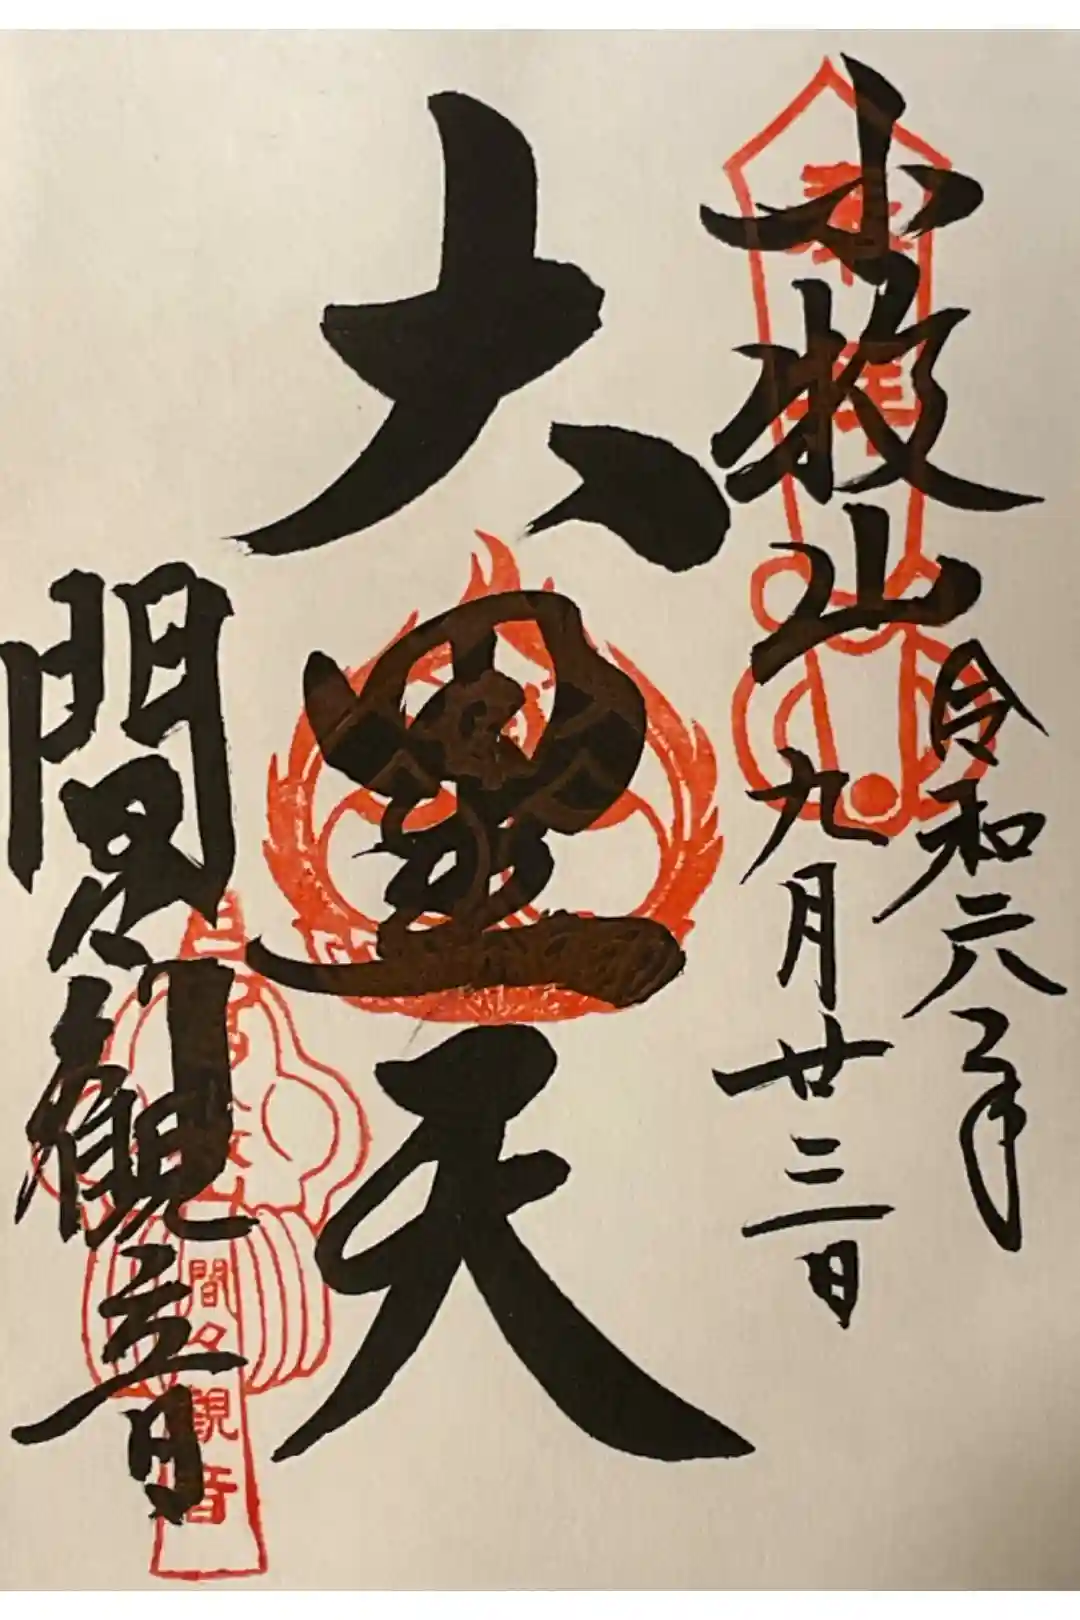 小牧山
令和六年
九月廿三日
大黒天
間々観音
奉拝
間々観音